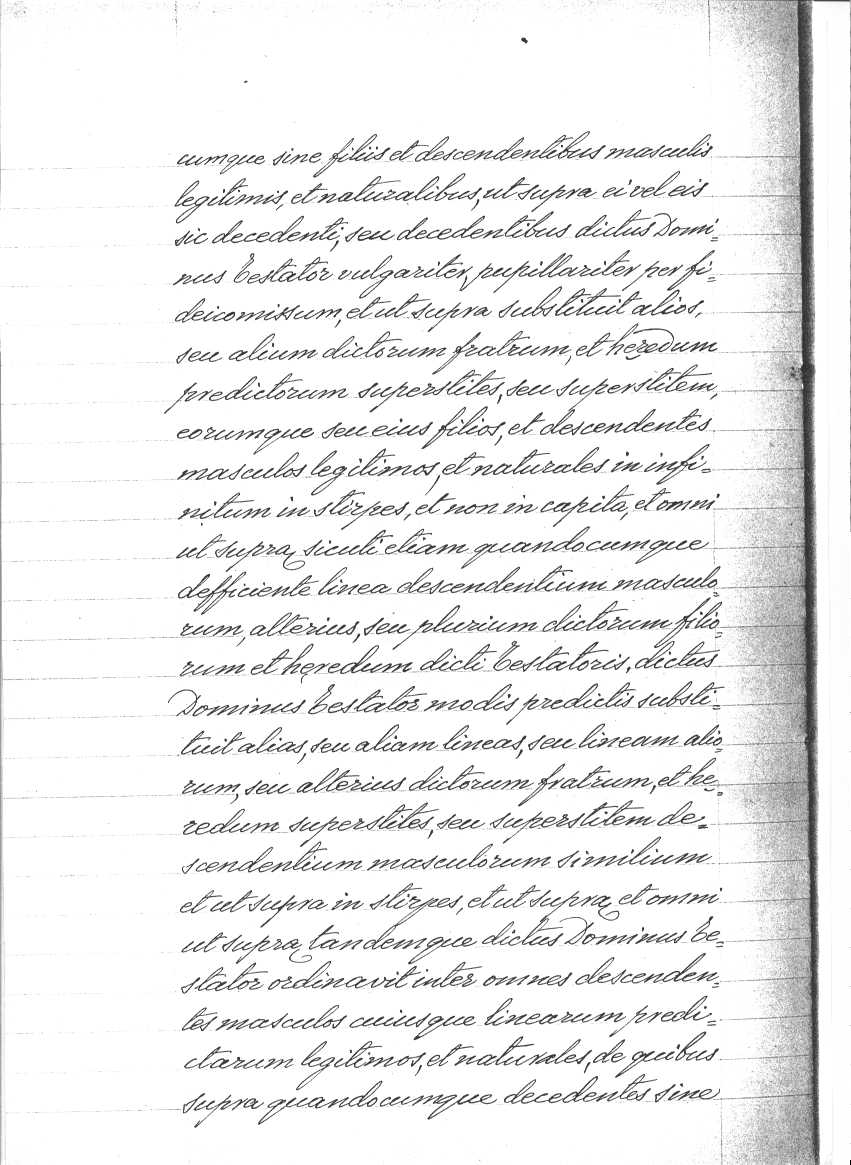 cumque sine filiis et descendentibus masculis
legitimis, et naturalibus, ut supra ei vel eis
sic decedenti, seu decedentibus dictus Domi=
nus Testator vulgariter, pupillariter per fi=
deicomissum, et ut supra substituit alios,
seu alium dictorum fratrum, et heredum
predictorum superstites, seu superstitem,
eorumque seu eius filios, et descendentes
masculos legitimos, et naturales in infi=
nitum in stirpes, et non in capita, et omni
ut supra, sicuti etiam quandocumque
defficiente linea descendentium masculo=
rum, alterius, seu plurium dictorum filio=
rum et heredum dicti Testatoris, dictus
Dominus Testator modis predictis substi=
tuit alias, seu aliam lineas, seu lineam alio=
rum, seu alterius dictorum fratrum, et he=
redum superstites, seu superstitem de=
scendentium masculorum similium
et ut supra in stirpes, et ut supra, et omni
ut supra, tandemque dictus Dominus Te=
stator ordinavit inter omnes descenden=
tes masculos cuiusque linearum predi=
ctarum legitimos, et naturales, de quibus
supra quandocumque decedentes sine